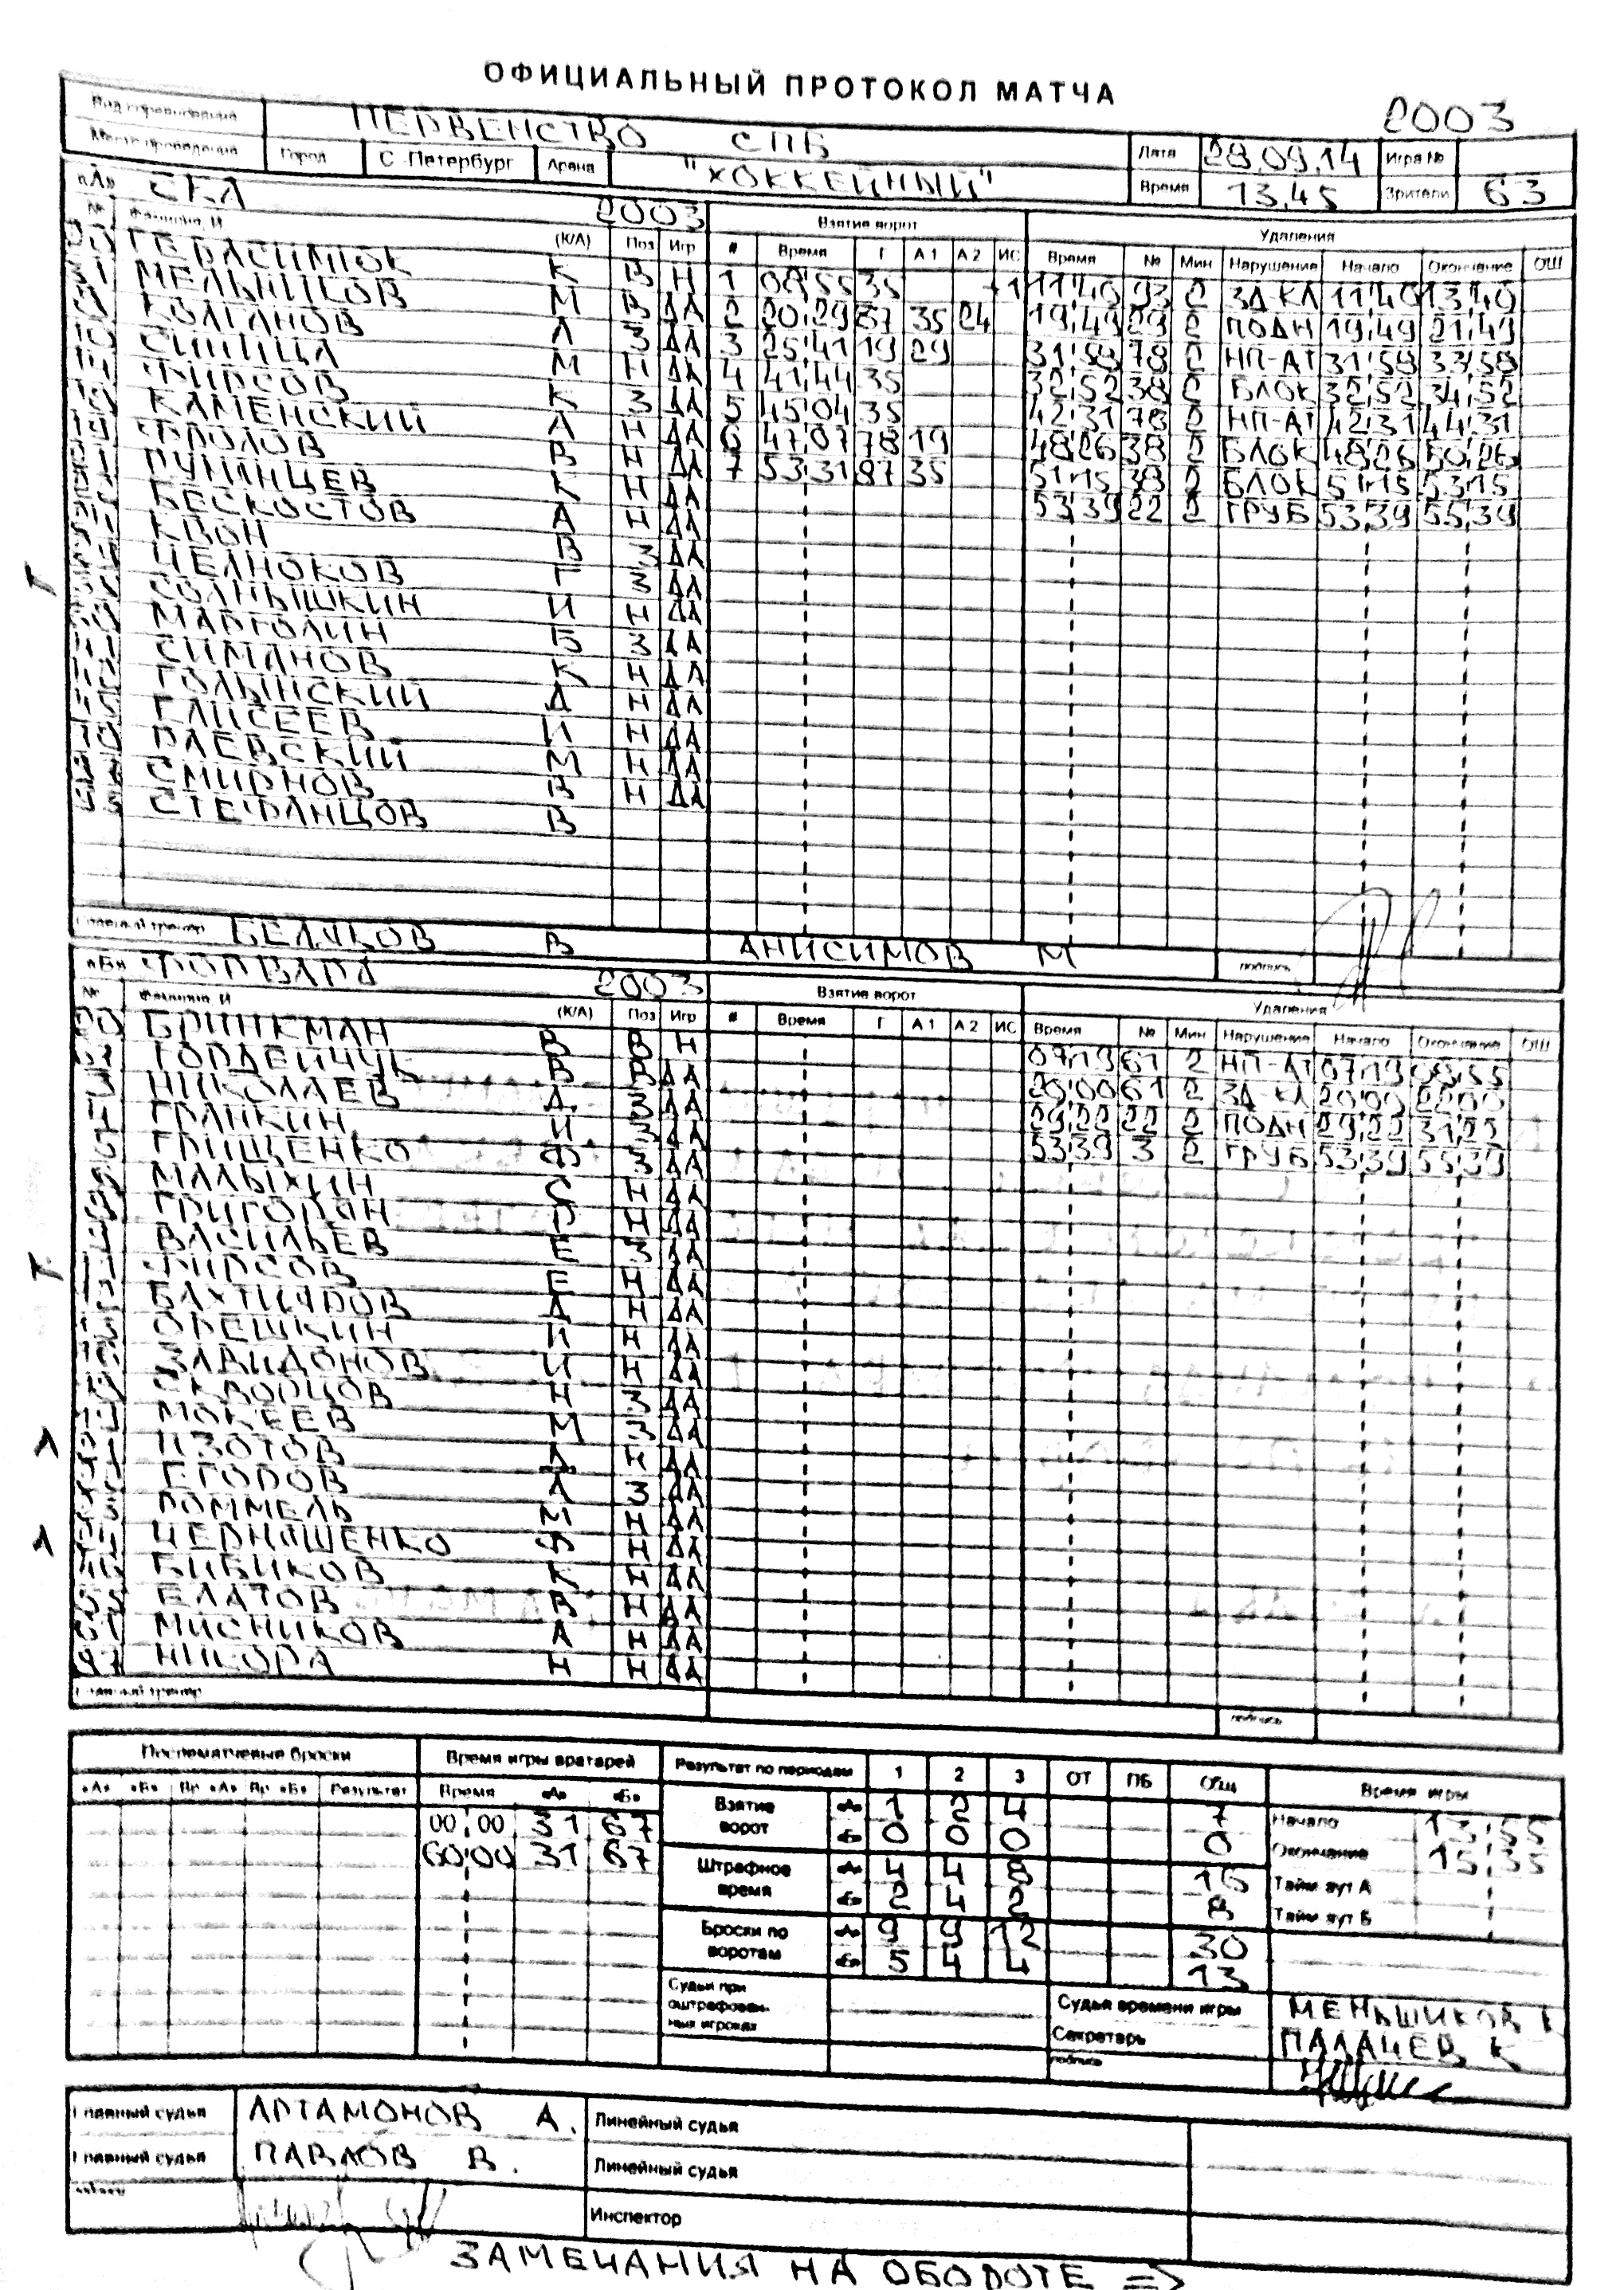 ОФИЦИАЛЬНЫЙ ПРОТОКОЛ МАТЧА
2003
Вид соревнования ПЕРВЕНСТВО СПБ Дата 28.09.14 Игра №
Место проведения Город С-Петербург Арена "ХОККЕЙНЫЙ" Время 13.45 Зрители 63
«А» СКА 2003 Взятие ворот Удаления
№ Фамилия, И (К/А) Поз Игр # Время Г А1 А2 ИС Время № Мин Нарушение Начало Окончание ОШ
ГЕРАСИМЮК К В Н 1 08:55 35 +1 11:40 93 2 ЗД КЛ 11:40 13:40
31 МЕЛЬНИКОВ М В ДА 2 20:29 87 35 24 19:49 29 2 ПОДН 19:49 21:49
КОЛГАНОВ А З ДА 3 25:41 19 29 31:58 78 2 НП-АТ 31:58 33:58
СИНИЦА М Н ДА 4 41:44 35 32:52 38 2 БЛОК 32:52 34:52
ФИРСОВ К З ДА 5 45:04 35 42:31 78 2 НП-АТ 42:31 44:31
КАМЕНСКИЙ А Н ДА 6 47:07 78 19 48:26 38 2 БЛОК 48:26 50:26
ФРОЛОВ В Н ДА 7 53:31 87 35 51:15 38 2 БЛОК 51:15 53:15
РУМЯНЦЕВ К Н ДА 53:39 22 2 ГРУБ 53:39 55:39
БЕСКОСТОВ А Н ДА
КВОН В З ДА
ЧЕЛНОКОВ Г З ДА
СОЛНЫШКИН И Н ДА
МАРГОЛИН Б З ДА
СИМАНОВ К Н ДА
ГОЛЫНСКИЙ Д Н ДА
ЕЛИСЕЕВ И Н ДА
РАЕВСКИЙ М Н ДА
СМИРНОВ В Н ДА
СТЕФАНЦОВ В
Главный тренер БЕЛЯКОВ В АНИСИМОВ М подпись
«Б» ФОРВАРД 2003 Взятие ворот Удаления
№ Фамилия, И (К/А) Поз Игр # Время Г А1 А2 ИС Время № Мин Нарушение Начало Окончание ОШ
20 БРИНКМАН В В Н 07:19 61 2 НП-АТ 07:19 08:55
ГОРДЕЙЧУК В В ДА 20:00 61 2 ЗД КЛ 20:00 22:00
3 НИКОЛАЕВ Д. З ДА 29:22 22 2 ПОДН 29:22 31:22
4 ГРАНКИН И З ДА 53:39 3 2 ГРУБ 53:39 55:39
5 ГРИЩЕНКО Ф З ДА
МАЛЫХИН С Н ДА
ГРИГОРЯН Р Н ДА
ВАСИЛЬЕВ Е З ДА
ФИРСОВ Е Н ДА
БАХТИЯРОВ Д Н ДА
ОРЕШКИН И Н ДА
ЗАВИДОНОВ И Н ДА
СКВОРЦОВ Н З ДА
МОКЕЕВ М З ДА
ИЗОТОВ А Н ДА
ЕГОРОВ А З ДА
РОММЕЛЬ М Н ДА
ЧЕРНЯШЕНКО Ф Н ДА
БИБИКОВ К Н ДА
ЕЛАТОВ В Н ДА
61 МИСНИКОВ А Н ДА
97 НИКОРА Н Н ДА
Главный тренер подпись
Послематчевые броски Время игры вратарей Результат по периодам 1 2 3 ОТ ПБ Общ Время игры
«А» «Б» Вр «А» Вр «Б» Результат Время «А» «Б» Взятие ворот «А» 1 2 4 7 Начало 13:55
00:00 31 67 «Б» 0 0 0 0 Окончание 15:35
60:00 31 67 Штрафное время «А» 4 4 8 16 Тайм аут А
«Б» 2 4 2 8 Тайм аут Б
Броски по воротам «А» 9 9 12 30
«Б» 5 4 4 13
Судьи при оштрафованных игроках Судья времени игры МЕНЬШИКОВ
Секретарь ПАЛАЧЕВ К
подпись
Главный судья АРТАМОНОВ А. Линейный судья
Главный судья ПАВЛОВ В. Линейный судья
Инспектор
ЗАМЕЧАНИЯ НА ОБОРОТЕ =>